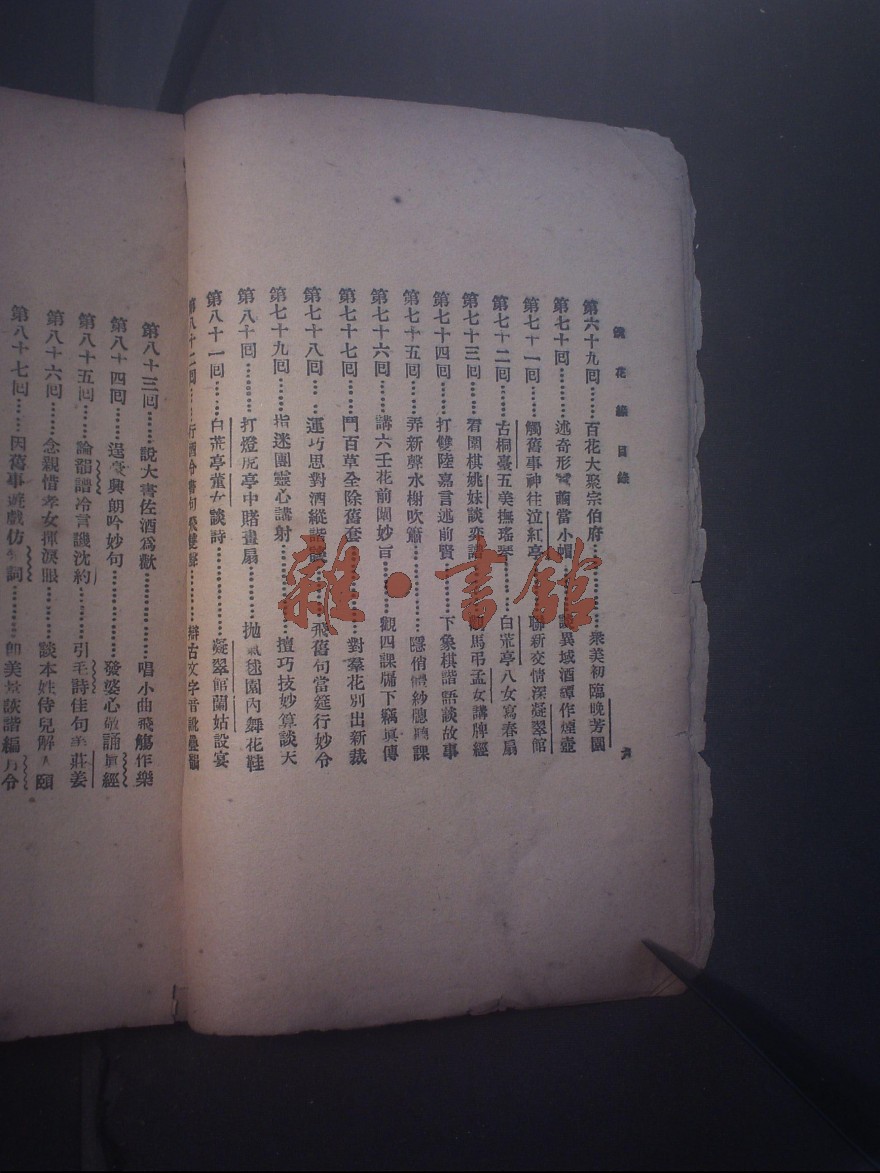 鏡花緣目錄
六
第六十九回……百花大聚宗伯府………衆美初臨晚芳園
第七十回……述奇形蠶繭當小帽……談異域酒罈作煙壺
第七十一回……觸舊事神往泣紅亭……聯新交情深凝翠館
第七十二回……古桐臺五美撫瑤琴……白荒亭八女寫春扇
第七十三回……看圍棋姚姝談弈譜……馬弔孟女講牌經
第七十四回……打雙陸嘉言述前賢……下象棋諧語談故事
第七十五回……弄新聲水榭吹簫……隱俏體紗窗聽課
第七十六回……講六壬花前闡妙旨……觀四課牖下竊眞傳
第七十七回……鬥百草全除舊套……對羣花別出新裁
第七十八回……運巧思對酒縱諧談……飛舊句當筵行妙令
第七十九回……指迷團靈心講射……擅巧技妙算談天
第八十回……打燈虎亭中賭畫扇……拋氣毬園內舞花鞋
第八十一回……白荒亭董女談詩……凝翠館蘭姑設宴
第八十二回……行酒令書句飛雙聲……辯古文字音訛疊韻
第八十三回……說大書佐酒爲歡……唱小曲飛觴作樂
第八十四回……逞豪興朗吟妙句……發婆心敬誦眞經
第八十五回……論韻譜冷言譏沈約……引毛詩佳句美莊姜
第八十六回……念親情孝女揮淚眼……談本姓侍兒解人頤
第八十七回……因舊事遊戲仿詞……卽美景詼諧編月令
雜·書館